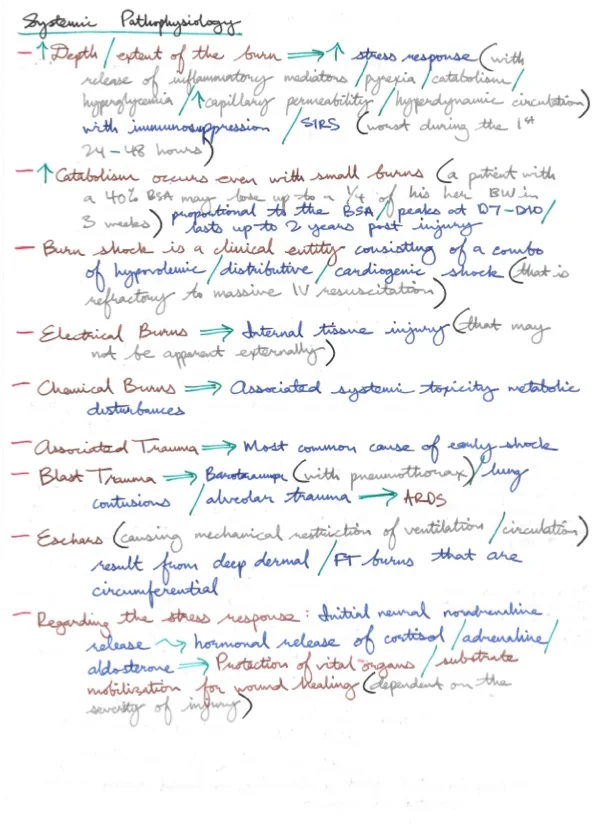 Systemic Pathophysiology
- ↑Depth / extent of the burn ⟹ ↑ stress response (with
release of inflammatory mediators / pyrexia / catabolism /
hyperglycemia / ↑capillary permeability / hyperdynamic circulation)
with immunosuppression / SIRS (worst during the 1st
24-48 hours)
- ↑Catabolism occurs even with small burns (a patient with
a 40% BSA may lose up to a 1/4 of his her BW in
3 weeks) proportional to the BSA / peaks at D7-D10 /
lasts up to 2 years post injury
- Burn shock is a clinical entity consisting of a combo
of hypovolemic / distributive / cardiogenic shock (that is
refractory to massive IV resuscitation)
- Electrical Burns ⟹ Internal tissue injury (that may
not be apparent externally)
- Chemical Burns ⟹ Associated systemic toxicity metabolic
disturbances
- Associated Trauma ⟹ Most common cause of early shock
- Blast Trauma ⟹ Barotrauma (with pneumothorax) / lung
contusions / alveolar trauma → ARDS
- Eschars (causing mechanical restriction of ventilation / circulation)
result from deep dermal / FT burns that are
circumferential
- Regarding the stress response: Initial neural noradrenaline
release ⇝ hormonal release of cortisol / adrenaline /
aldosterone ⟹ Protection of vital organs / substrate
mobilization for wound healing (dependent on the
severity of injury)